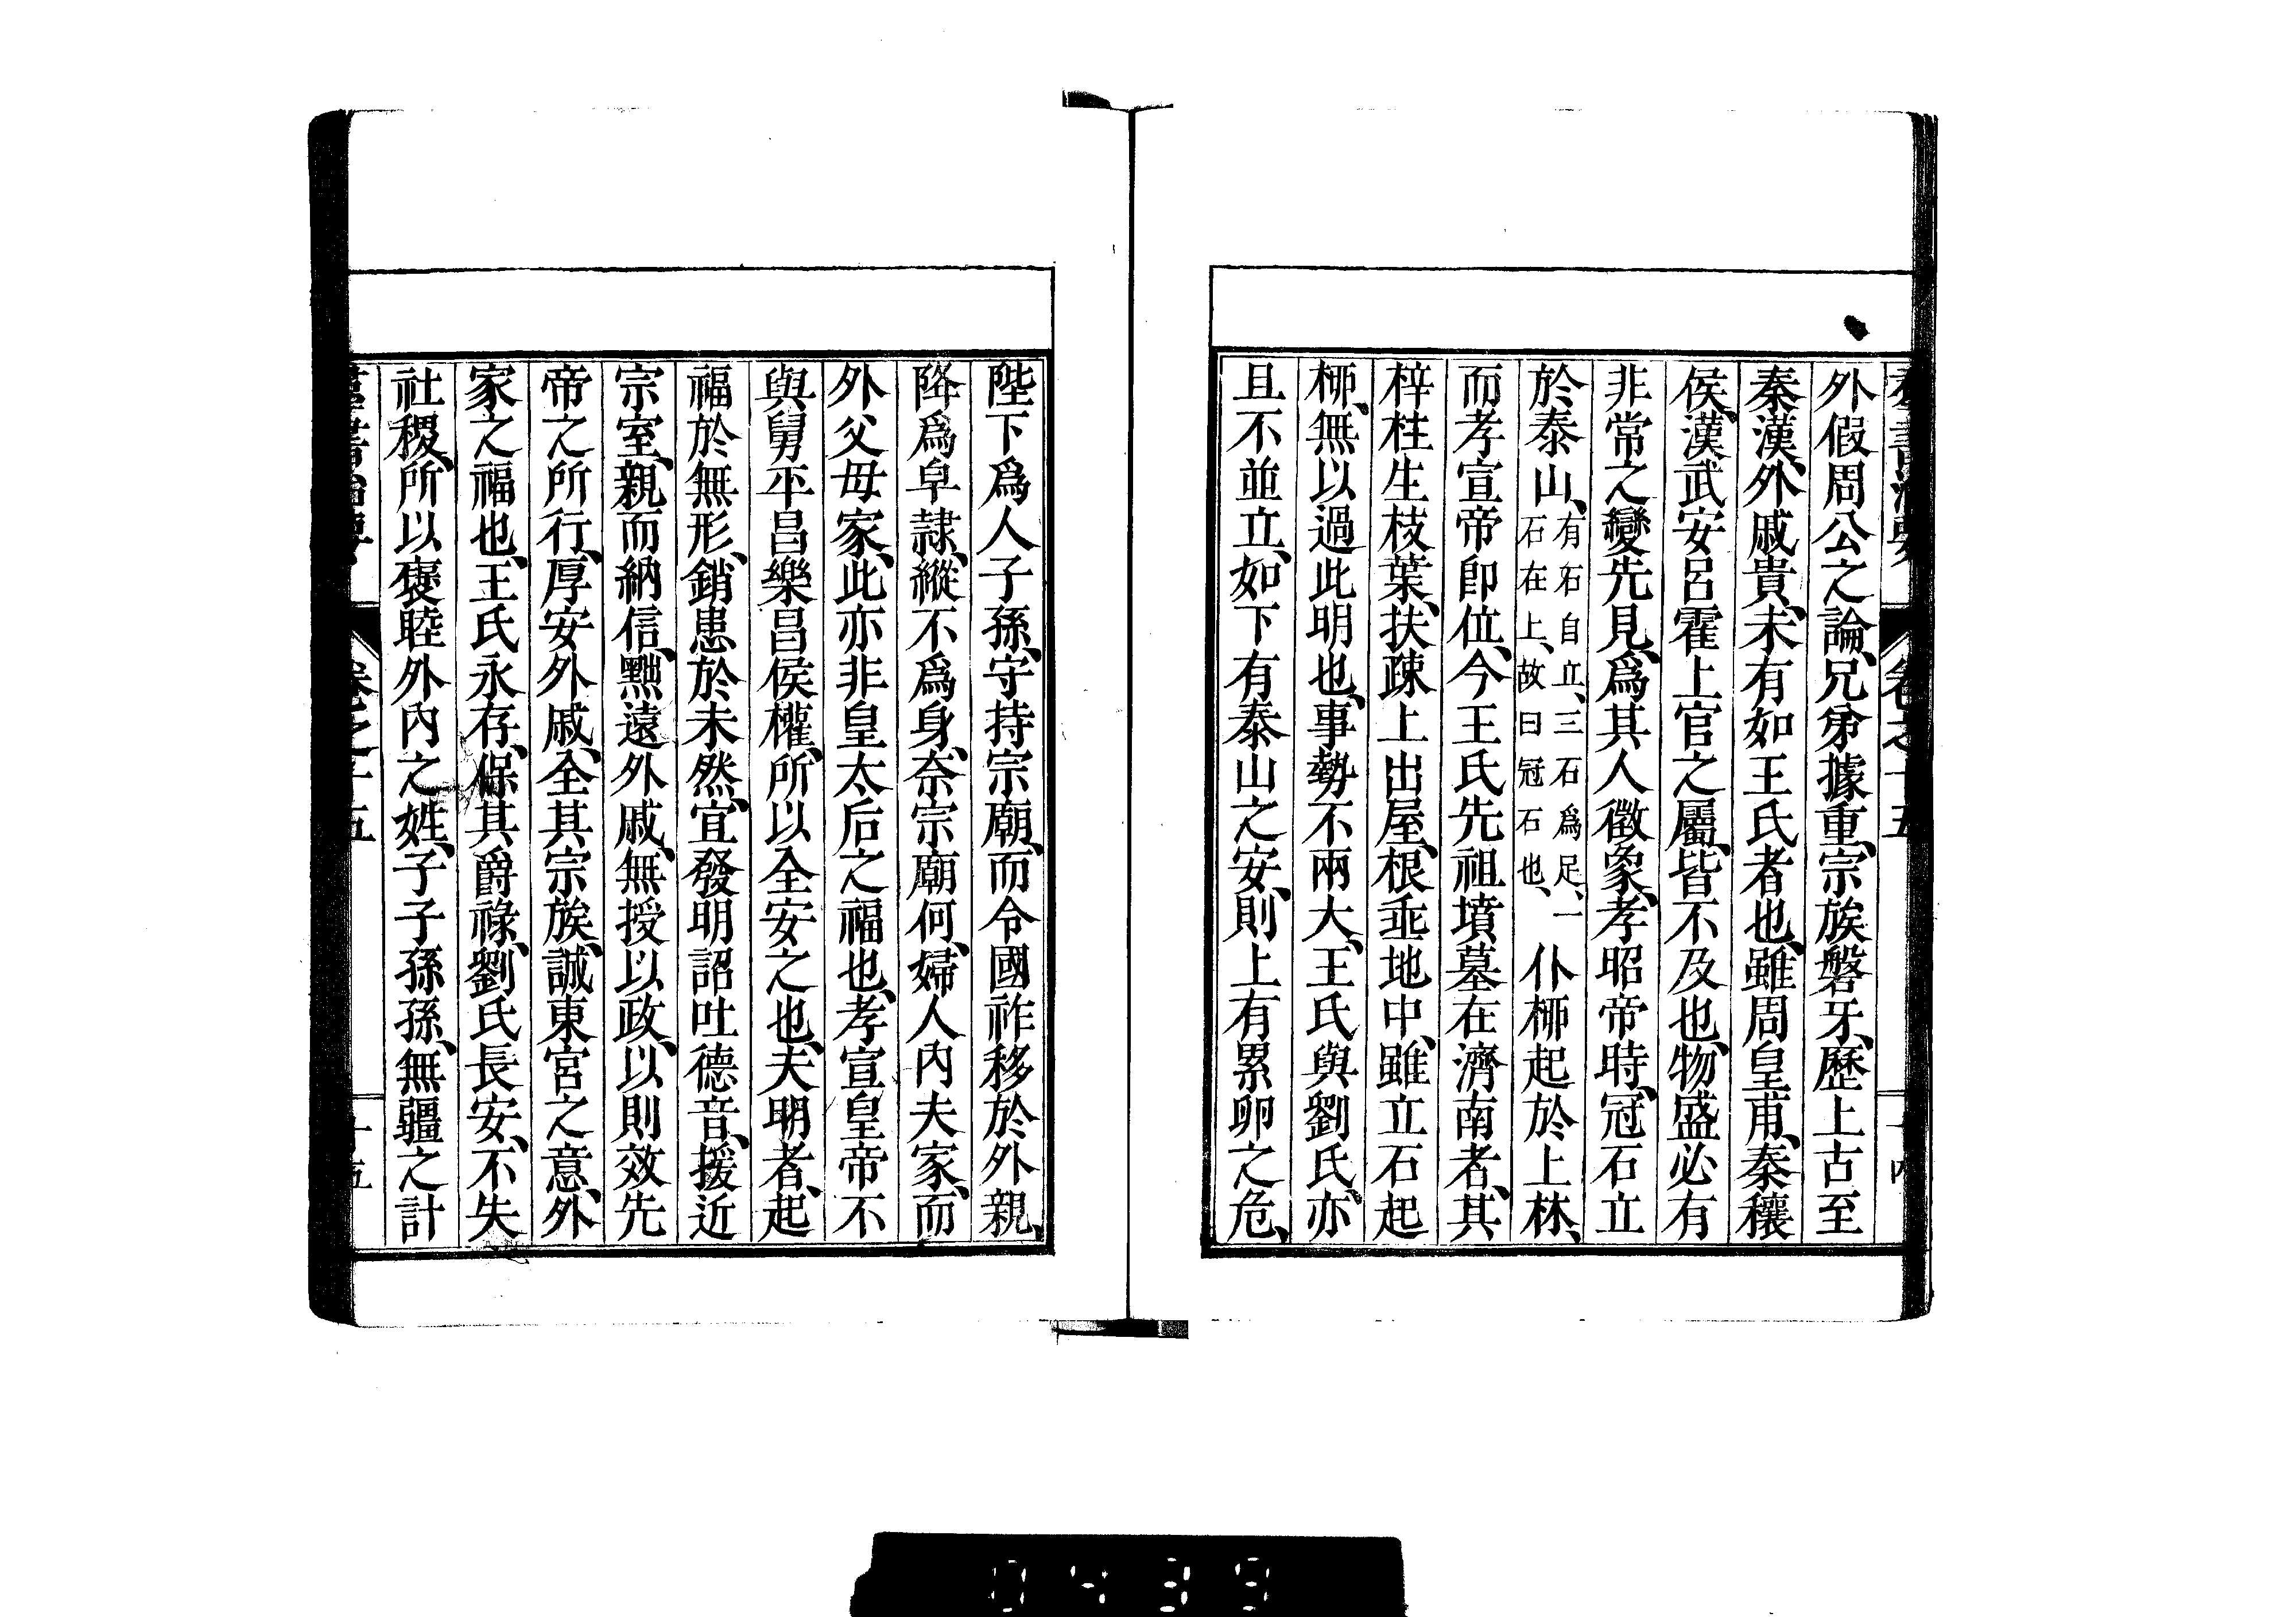 羣書治要 卷之十五 十四
外假周公之論、兄弟據重、宗族磐牙、歷上古至
秦漢、外戚貴、未有如王氏者也、雖周皇甫、秦穰
侯、漢武安呂霍上官之屬、皆不及也、物盛必有
非常之變先見、爲其人徵象、孝昭帝時、冠石立
於泰山、有石自立、三石爲足、一石在上、故曰冠石也、仆柳起於上林、
而孝宣帝卽位、今王氏先祖墳墓在濟南者、其
梓柱生枝葉、扶疎上出屋、根臿地中、雖立石起
柳、無以過此明也、事勢不兩大、王氏與劉氏、亦
且不並立、如下有泰山之安、則上有累卵之危、
陛下爲人子孫、守持宗廟、而令國祚移於外親、
降爲皁隸、縱不爲身、奈宗廟何、婦人內夫家、而
外父母家、此亦非皇太后之福也、孝宣皇帝不
與舅平昌樂昌侯權、所以全安之也、夫明者、起
福於無形、銷患於未然、宜發明詔吐德音、援近
宗室、親而納信、黜遠外戚、無授以政、以則效先
帝之所行、厚安外戚、全其宗族、誠東宮之意、外
家之福也、王氏永存、保其爵祿、劉氏長安、不失
社稷、所以褒睦外內之姓、子子孫孫、無疆之計
羣書治要 卷之十五 十五
0439